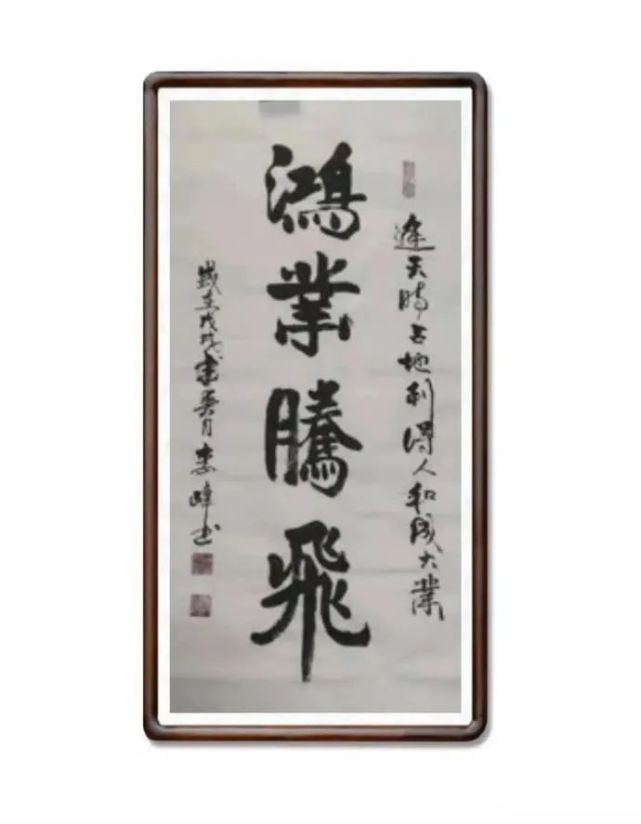 逢天時占地利得人和成大業
鴻業騰飛
歲在戊戌 月 峰书